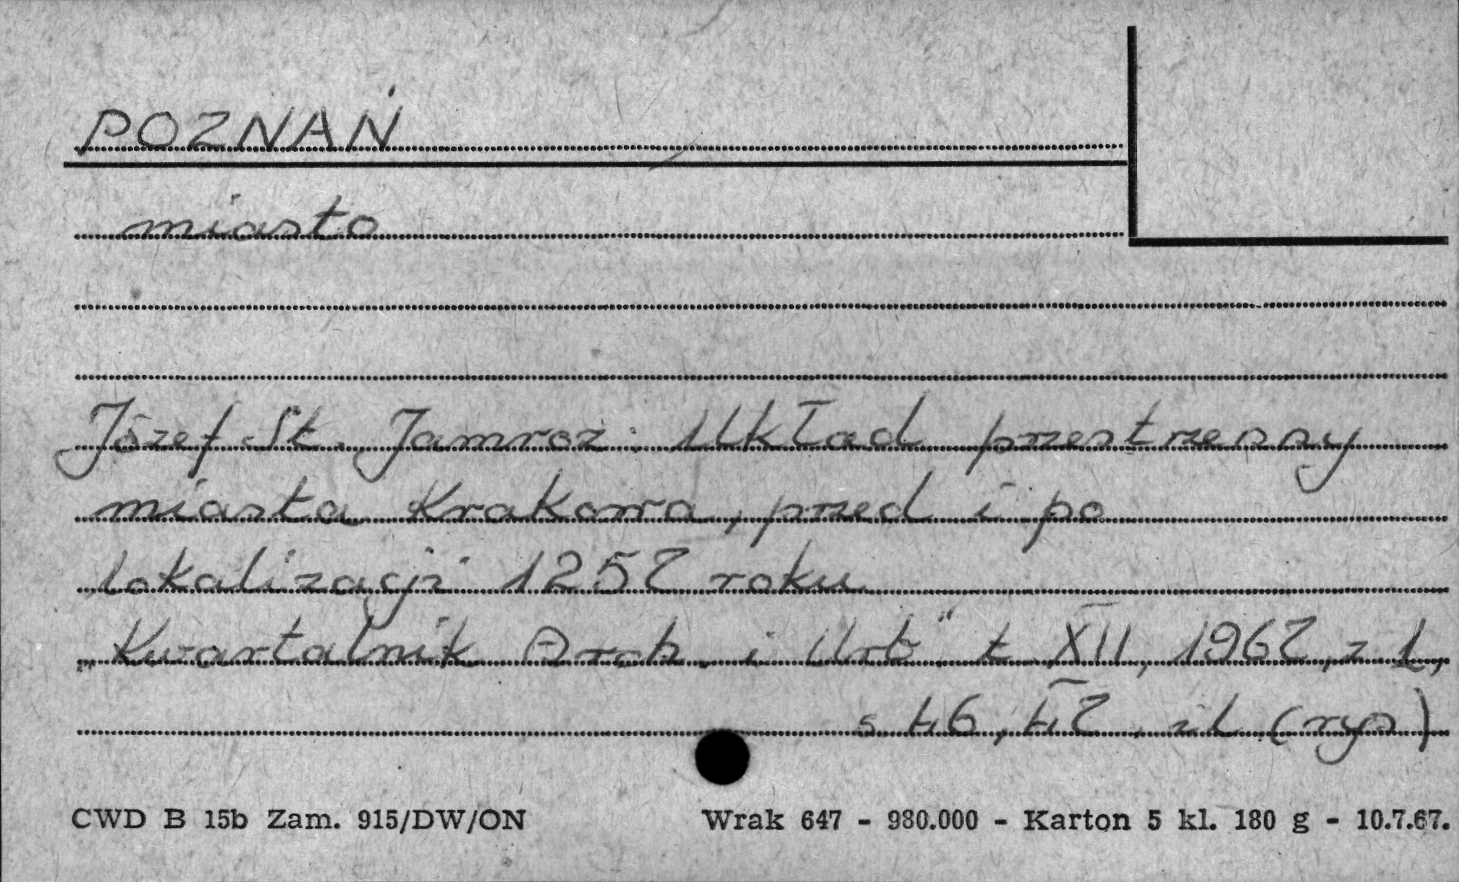 POZNAŃ
miasto
Józef St. Jamroz: Układ przestrzenny
miasta Krakowa, przed i po
lokalizacji 1257 roku
„Kwartalnik Arch. i Urb" t XII, 1967, z 1,
s 46, 47, il (rys)
CWD B 15b Zam. 915/DW/ON Wrak 647 - 980.000 - Karton 5 kl. 180 g - 10.7.67.